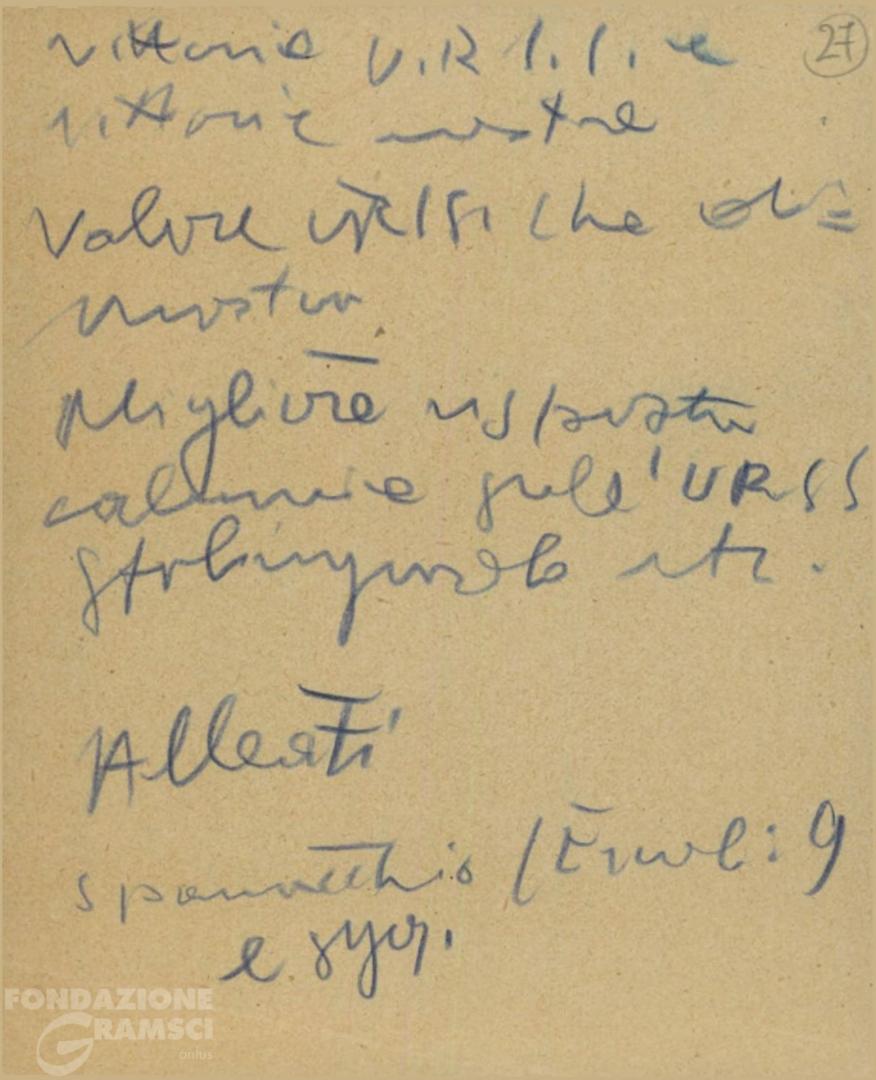 27
vittorie U.R.S.S. e
vittorie nostre
Valore URSS che di=
mostra
Migliore risposta
calunnie sull'URSS
Stalingrado etc.
Alleati
spauracchio
e
FONDAZIONE
GRAMSCI
onlus